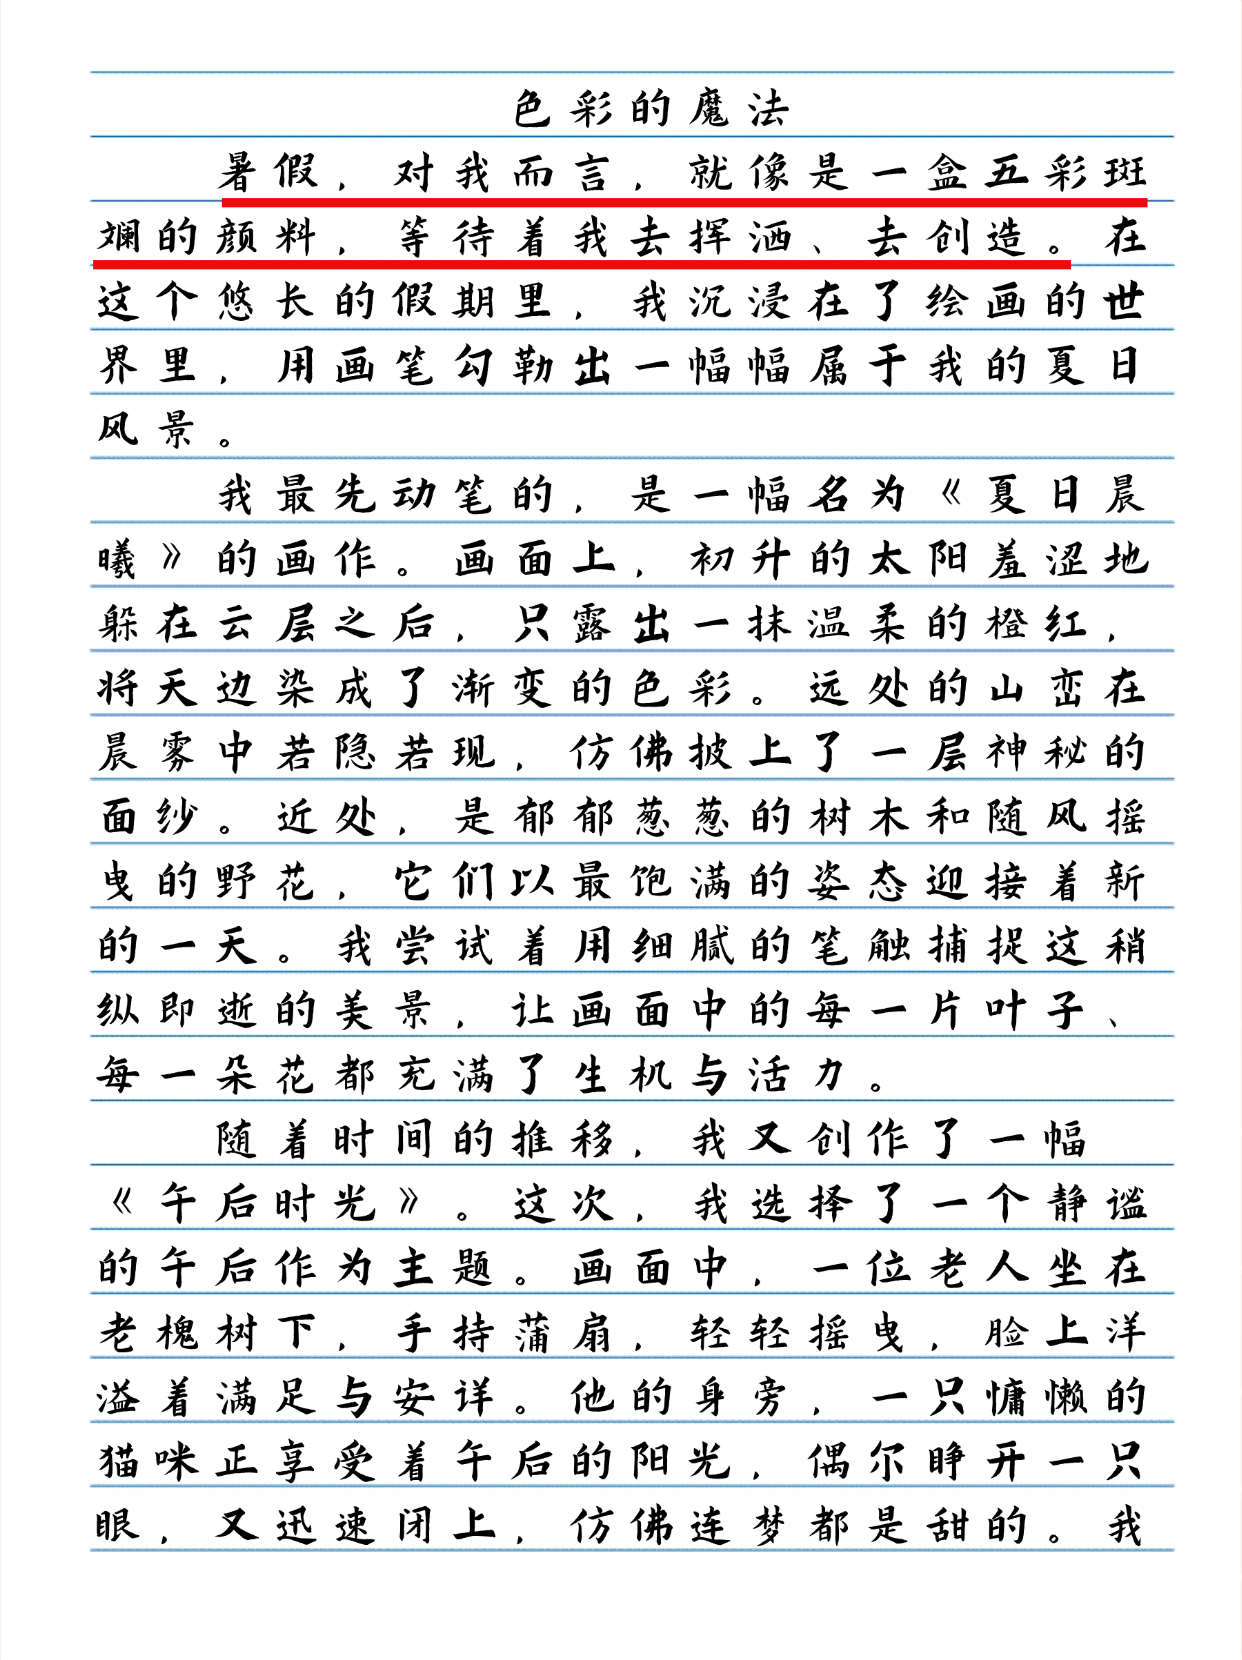 色彩的魔法
暑假，对我而言，就像是一盒五彩斑
斓的颜料，等待着我去挥洒、去创造。在
这个悠长的假期里，我沉浸在了绘画的世
界里，用画笔勾勒出一幅幅属于我的夏日
风景。
我最先动笔的，是一幅名为《夏日晨
曦》的画作。画面上，初升的太阳羞涩地
躲在云层之后，只露出一抹温柔的橙红，
将天边染成了渐变的色彩。远处的山峦在
晨雾中若隐若现，仿佛披上了一层神秘的
面纱。近处，是郁郁葱葱的树木和随风摇
曳的野花，它们以最饱满的姿态迎接着新
的一天。我尝试着用细腻的笔触捕捉这稍
纵即逝的美景，让画面中的每一片叶子、
每一朵花都充满了生机与活力。
随着时间的推移，我又创作了一幅
《午后时光》。这次，我选择了一个静谧
的午后作为主题。画面中，一位老人坐在
老槐树下，手持蒲扇，轻轻摇曳，脸上洋
溢着满足与安详。他的身旁，一只慵懒的
猫咪正享受着午后的阳光，偶尔睁开一只
眼，又迅速闭上，仿佛连梦都是甜的。我